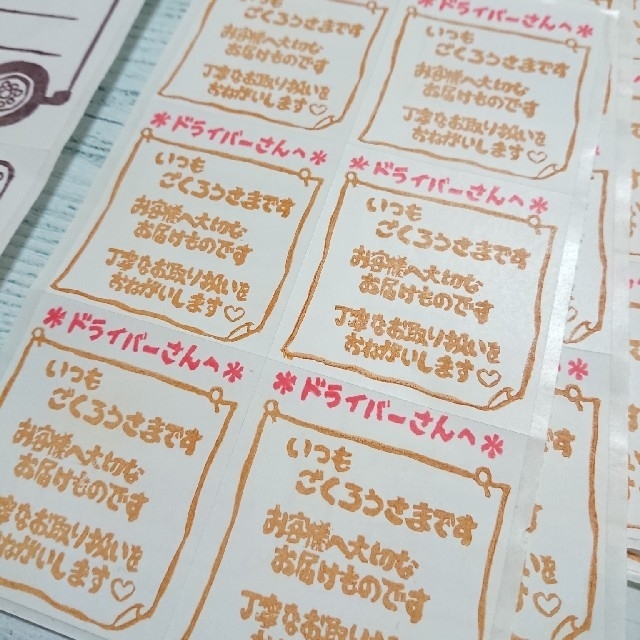 いつも
ごくろうさまです
お客様へ大切な
お届けものです
丁寧なお取り扱いを
おねがいします♡
＊ドライバーさんへ＊
いつも
ごくろうさまです
お客様へ大切な
お届けものです
丁寧なお取り扱いを
おねがいします♡
＊ドライバーさんへ＊
いつも
ごくろうさまです
お客様へ大切な
お届けものです
丁寧なお取り扱いを
おねがいします♡
＊ドライバーさんへ＊
いつも
ごくろうさまです
お客様へ大切な
お届けものです
丁寧なお取り扱いを
おねがいします♡
＊ドライバーさんへ＊
いつも
ごくろうさまです
お客様へ大切な
お届けものです
丁寧なお取り扱いを
おねがいします♡
＊ドライバーさんへ＊
いつも
ごくろうさまです
お客様へ大切な
お届けものです
丁寧なお取り扱いを